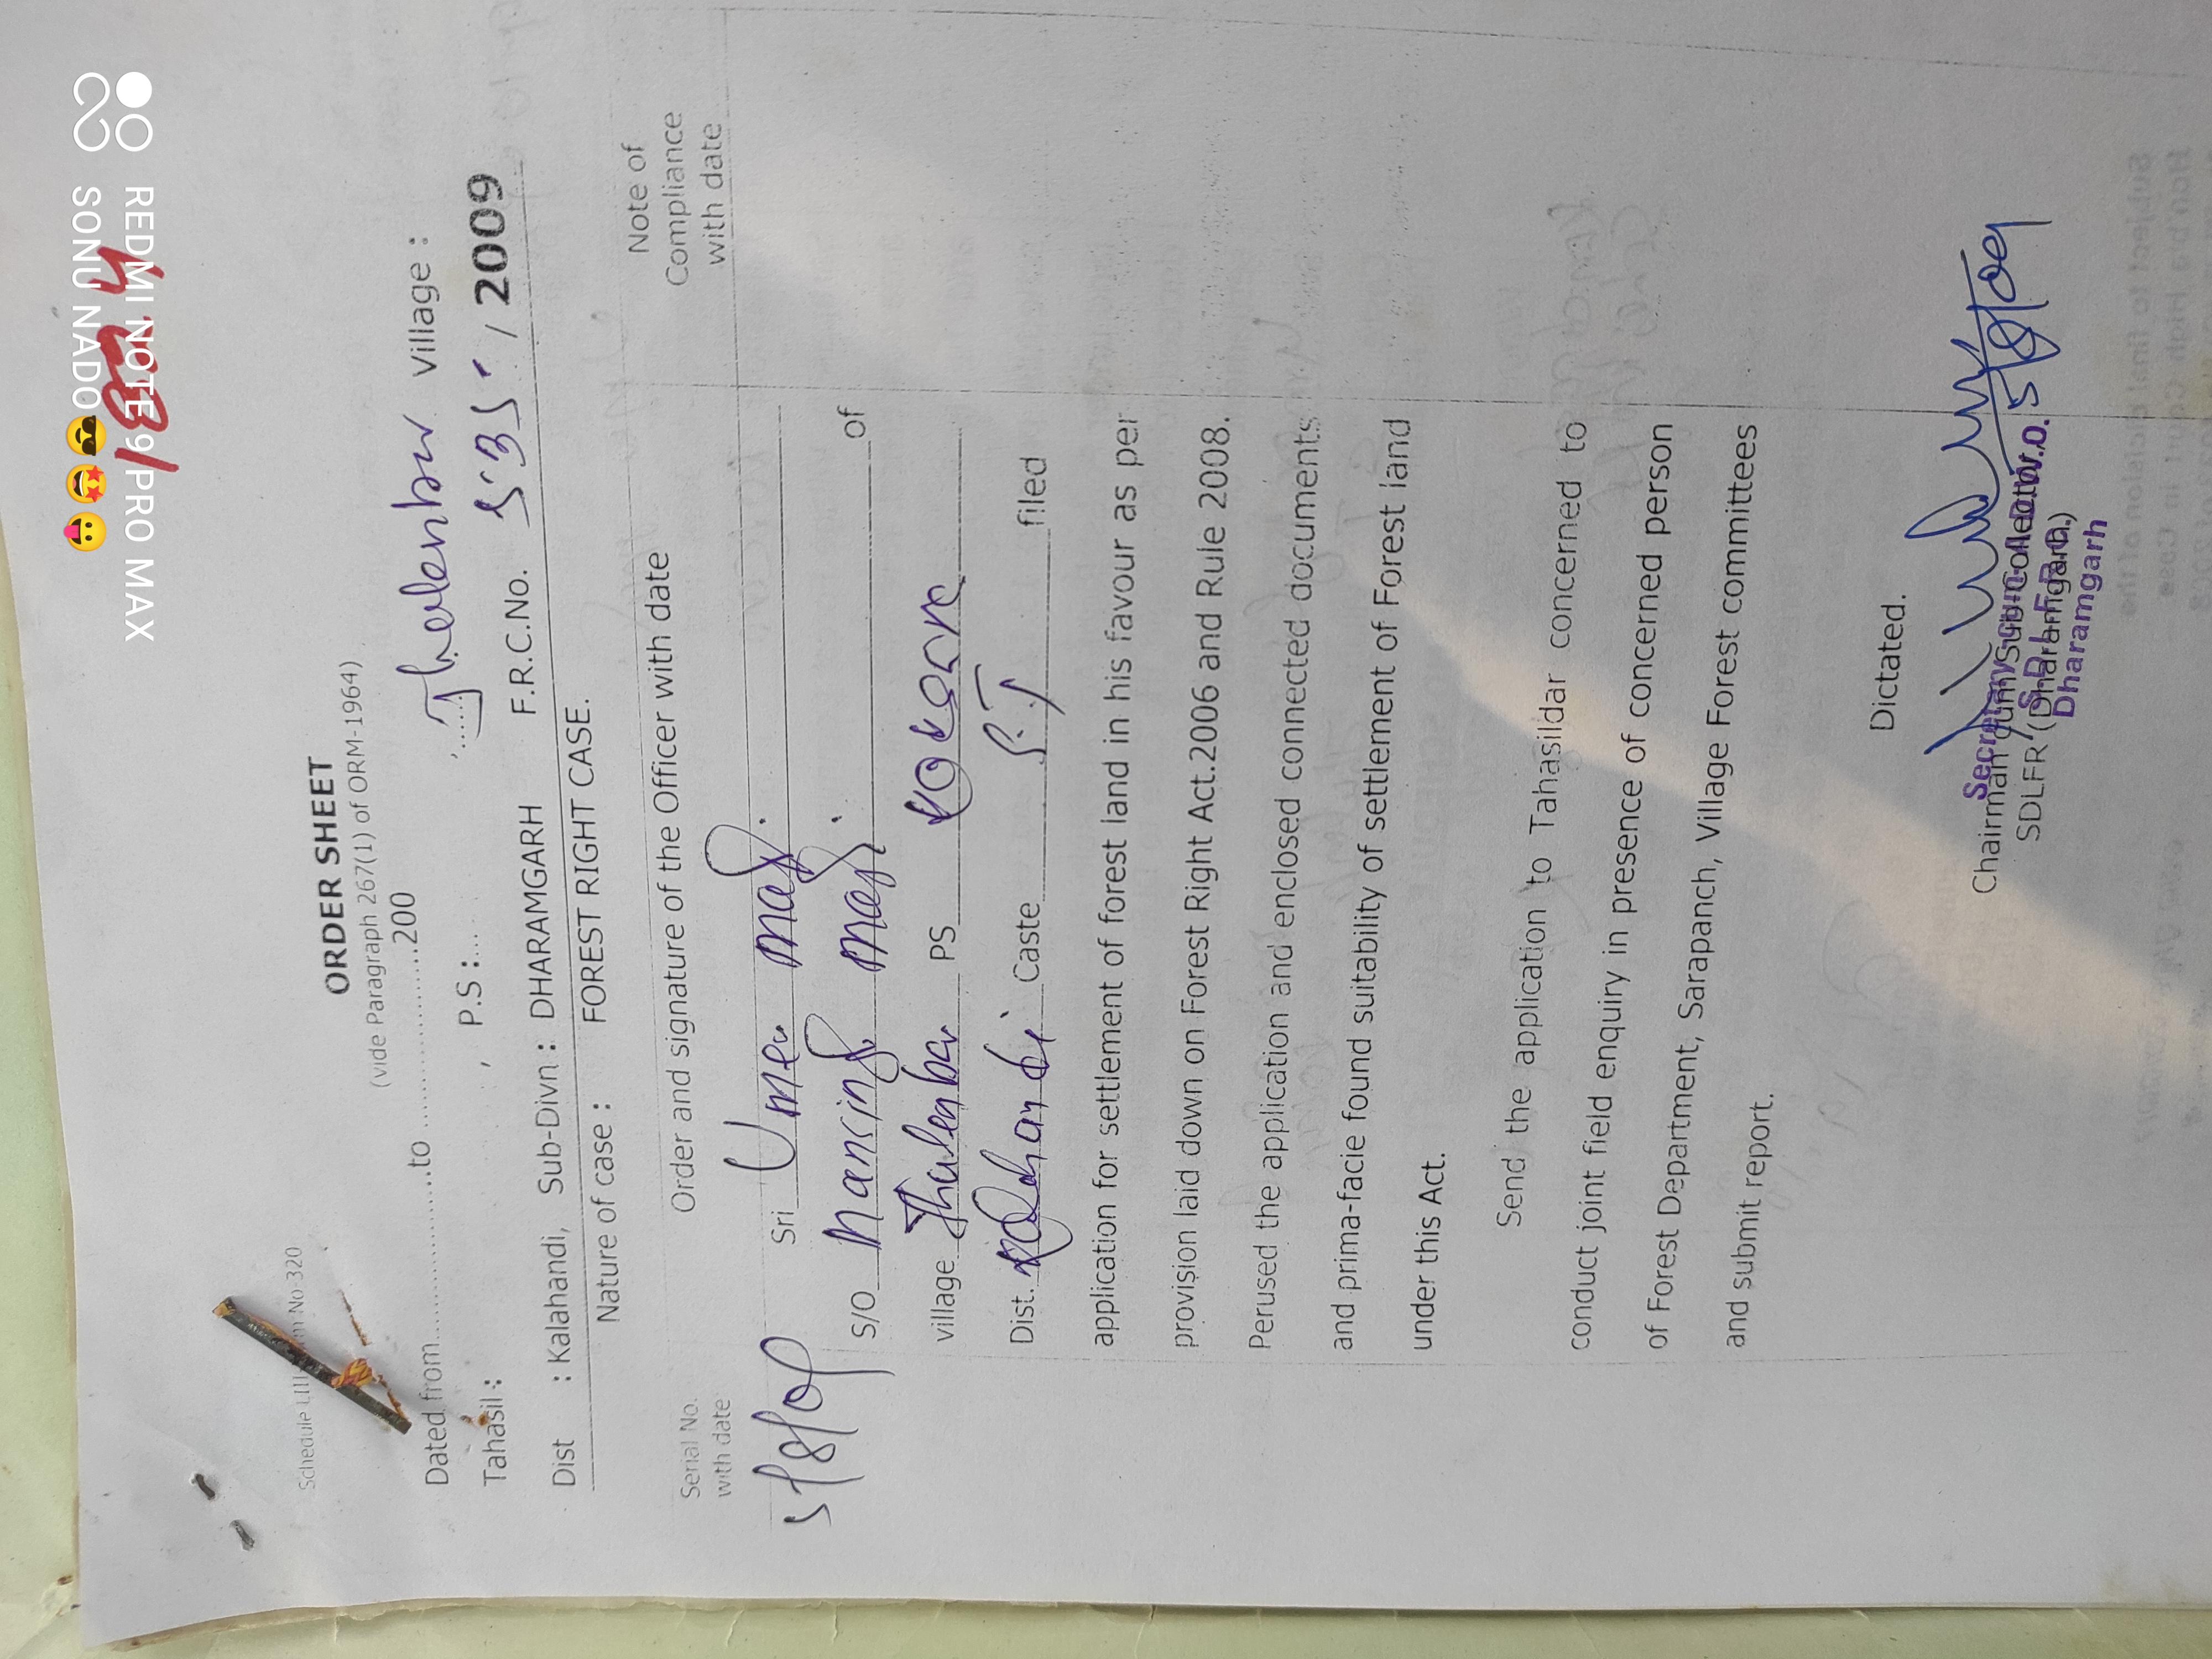 Schedule LIII No 320
ORDER SHEET
(vide Paragraph 267(1) of ORM-1964)
Dated from..............to ..............200
Tahasil : , P.S :.... Village :
Dist : Kalahandi, Sub-Divn : DHARAMGARH F.R.C.No. 535 / 2009
Nature of case : FOREST RIGHT CASE.
Serial No. with date
Order and signature of the Officer with date
Note of Compliance with date
5/8/09
Sri Umer Majhi
S/O Mansing Majhi of
village PS Koksara
Dist. Kalahandi Caste S.T filed
application for settlement of forest land in his favour as per
provision laid down on Forest Right Act.2006 and Rule 2008.
Perused the application and enclosed connected documents
and prima-facie found suitability of settlement of Forest land
under this Act.
Send the application to Tahasildar concerned to
conduct joint field enquiry in presence of concerned person
of Forest Department, Sarapanch, Village Forest committees
and submit report.
Dictated.
5/8/09
Chairman cum Sub-Collector,
SDLFR (Dharamgarh)
Secretary cum D.W.O.
S.D.L.F.R.C.
Dharamgarh
REDMI NOTE 9 PRO MAX
SONU NADO😎🤩😛